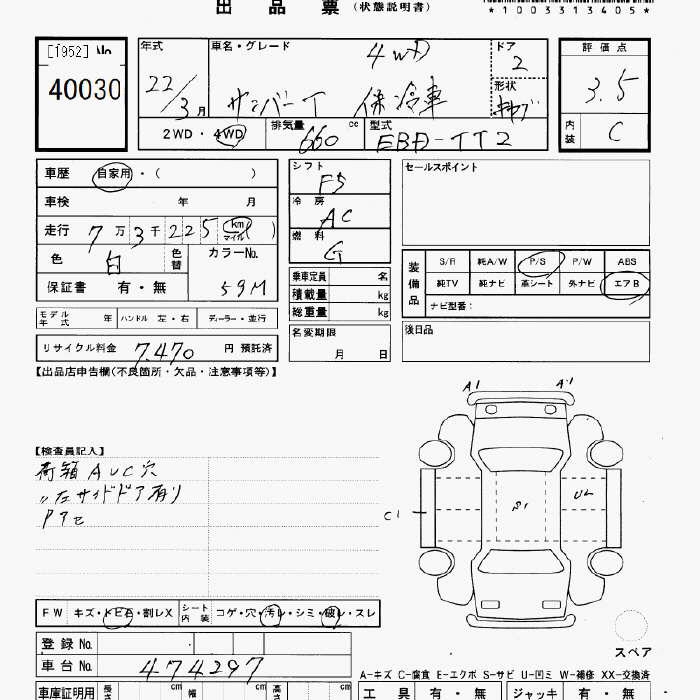 出品票（状態説明書）
*1003313405*
[1952] No
40030
年式 22/3月
車名・グレード 4WD
サンバーT 保冷車
ドア 2
形状
評価点 3.5
内装 C
2WD・4WD
排気量 660 cc
型式 EBD-TT2
車歴 自家用・（ ）
車検 年 月
走行 7万3千225 km マイル( )
色 白 色替
カラーNo. 59M
保証書 有・無
シフト F5
冷房 AC
燃料 G
乗車定員 名
積載量 kg
総重量 kg
名変期限 月 日
セールスポイント
装備品
S/R 純A/W P/S P/W ABS
純TV 純ナビ 革シート 外ナビ エアB
ナビ型番：
後日品
モデル年式 年 ハンドル 左・右 ディーラー・並行
リサイクル料金 7,470 円 預託済
【出品店申告欄(不良箇所・欠品・注意事項等)】
A1 A1
C1 S1 U2
スペア
【検査員記入】
荷箱 AUC穴
〃左サイドドア有り
FW キズ・トビ石・割レX
シート内装 コゲ・穴・汚レ・シミ・破レ・スレ
登録No.
車台No. 474297
A-キズ C-腐食 E-エクボ S-サビ U-凹ミ W-補修 XX-交換済
車庫証明用 長さ cm 幅 cm 高さ cm
工具 有・無 ジャッキ 有・無